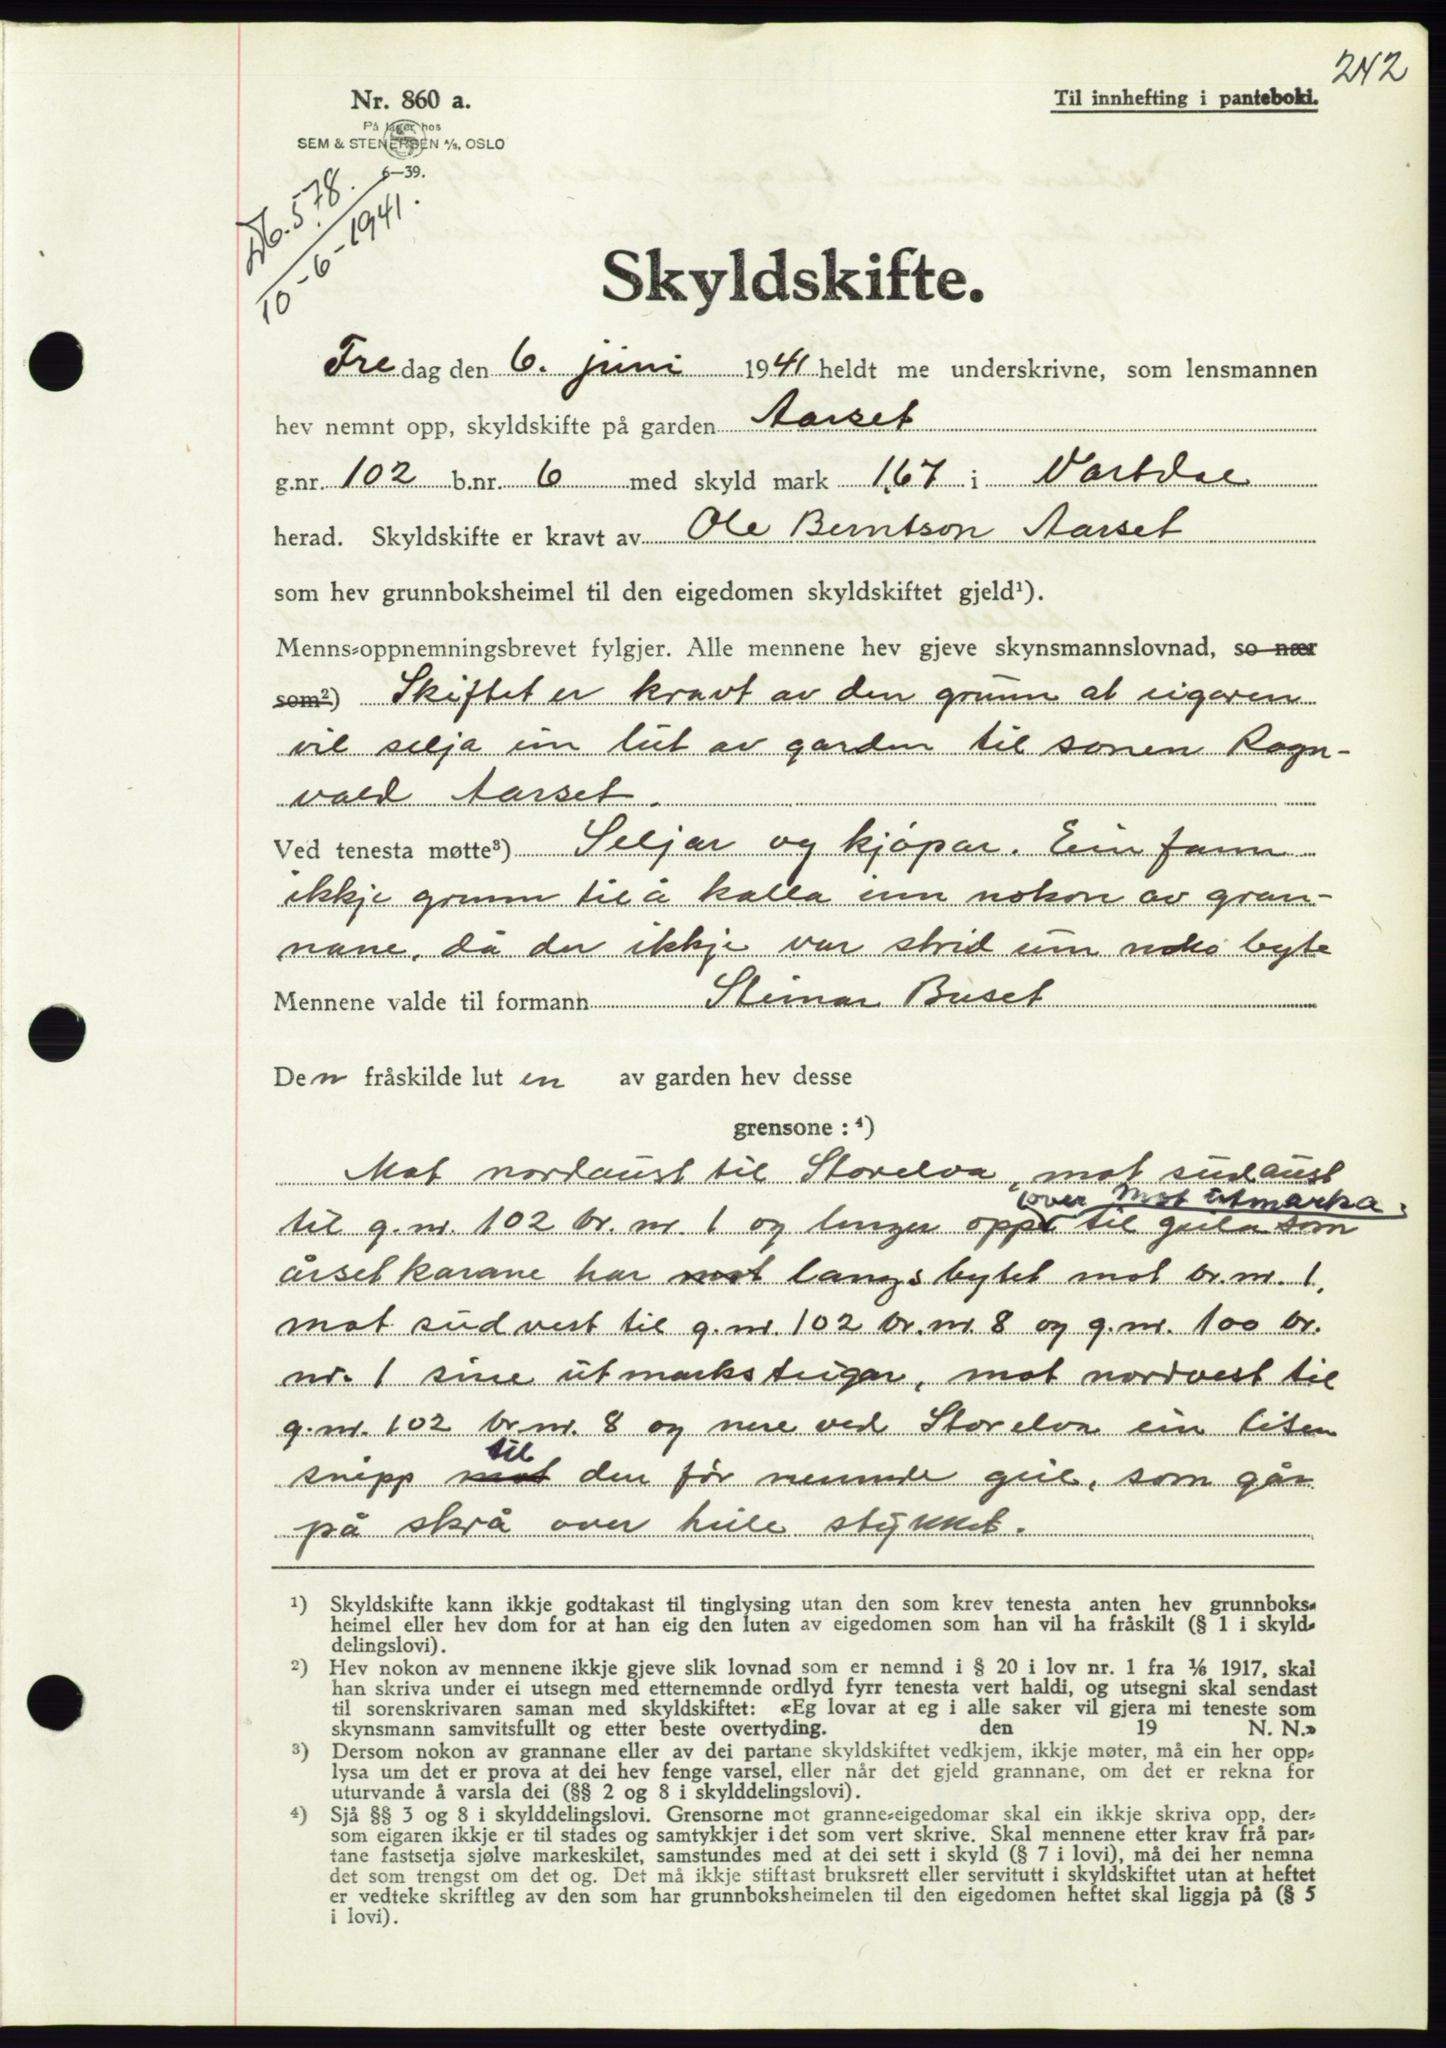 242
Nr. 860 a.
Til innhefting i panteboki.
På lager hos
SEM & STENERSEN A/S, OSLO
6—39.
Db. 578.
10-6-1941.
Skyldskifte.
Fredag den 6. juni 1941 heldt me underskrivne, som lensmannen
hev nemnt opp, skyldskifte på garden Aarset
g.nr. 102 b.nr. 6 med skyld mark 1,67 i Vartdal
herad. Skyldskifte er kravt av Ole Berntson Aarset
som hev grunnboksheimel til den eigedomen skyldskiftet gjeld¹).
Menns-oppnemningsbrevet fylgjer. Alle mennene hev gjeve skynsmannslovnad, so nær
som²) Skiftet er kravt av den grunn at eigaren
vil selja ein lut av garden til sonen Ragn-
vald Aarset.
Ved tenesta møtte³) Seljar og kjøpar. Ein fann
ikkje grunn til å kalla inn nokon av gran-
nane, då der ikkje var strid um noko byte
Mennene valde til formann Steinar Buset
Den fråskilde luten av garden hev desse
grensone : ⁴)
Mot nordaust til Storelva, mot sudaust
over mot utmarka.
til g.nr. 102 br. nr. 1 og lenger opp til geila som
årsetkarane har mot langs bytet mot br. nr. 1,
mot sudvest til g.nr. 102 br. nr. 8 og g.nr. 100 br.
nr. 1 sine utmarksteigar, mot nordvest til
g.nr. 102 br. nr. 8 og nere ved Storelva ein liten
til
snipp mot den før nemnde geil, som går
på skrå over heile stykket.
¹) Skyldskifte kann ikkje godtakast til tinglysing utan den som krev tenesta anten hev grunnboks-
heimel eller hev dom for at han eig den luten av eigedomen som han vil ha fråskilt (§ 1 i skyld-
delingslovi).
²) Hev nokon av mennene ikkje gjeve slik lovnad som er nemnd i § 20 i lov nr. 1 fra 1/6 1917, skal
han skriva under ei utsegn med etternemnde ordlyd fyrr tenesta vert haldi, og utsegni skal sendast
til sorenskrivaren saman med skyldskiftet: «Eg lovar at eg i alle saker vil gjera mi teneste som
skynsmann samvitsfullt og etter beste overtyding. den 19 N. N.»
³) Dersom nokon av grannane eller av dei partane skyldskiftet vedkjem, ikkje møter, må ein her opp-
lysa um det er prova at dei hev fenge varsel, eller når det gjeld grannane, om det er rekna for
uturvande å varsla dei (§§ 2 og 8 i skylddelingslovi).
⁴) Sjå §§ 3 og 8 i skylddelingslovi. Grensorne mot granne-eigedomar skal ein ikkje skriva opp, der-
som eigaren ikkje er til stades og samtykkjer i det som vert skrive. Skal mennene etter krav frå par-
tane fastsetja sjølve markeskilet, samstundes med at dei sett i skyld (§ 7 i lovi), må dei her nemna
det som trengst om det og. Det må ikkje stiftast bruksrett eller servitutt i skyldskiftet utan at heftet
er vedteke skriftleg av den som har grunnboksheimelen til den eigedomen heftet skal liggja på (§ 5
i lovi).